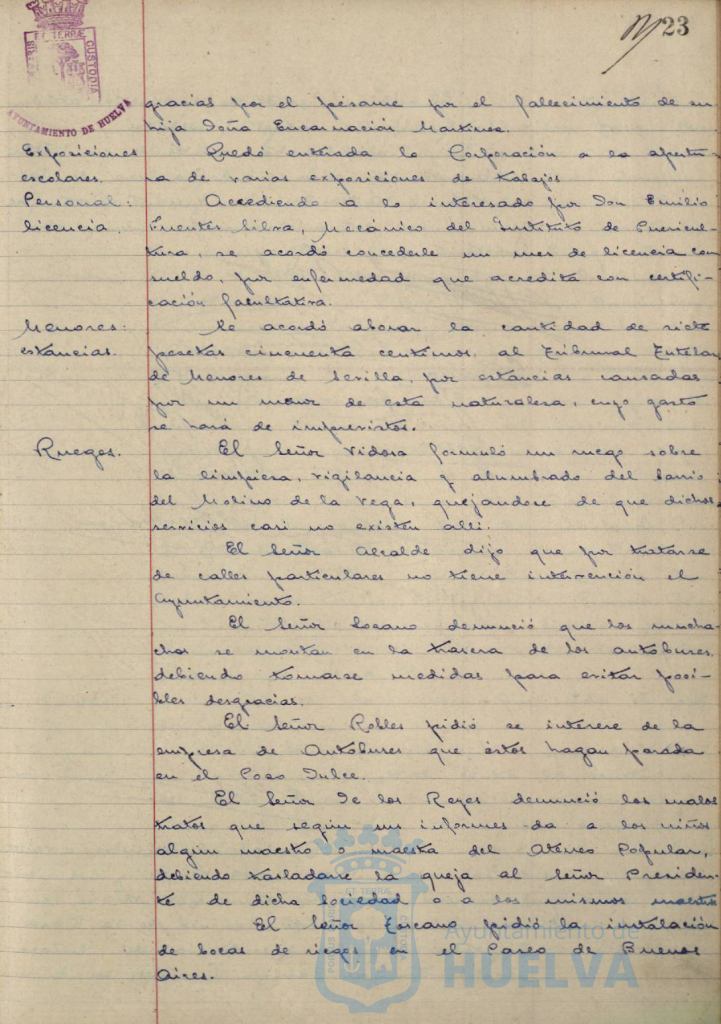 23
AYUNTAMIENTO DE HUELVA
gracias por el pésame por el fallecimiento de su
hija Doña Encarnación Martínez.
Exposiciones escolares.
Quedó enterada la Corporación a la apertu-
ra de varias exposiciones de trabajos
Personal: licencia.
Accediendo a lo interesado por Don Emilio
Fuentes Silva, Mecánico del Instituto de Puericul-
tura, se acordó concederle un mes de licencia con
sueldo, por enfermedad que acredita con certifi-
cación facultativa.
Menores: estancias.
Se acordó abonar la cantidad de siete
pesetas cincuenta centimos, al Tribunal Tutelar
de Menores de Sevilla, por estancias causadas
por un menor de esta naturaleza, cuyo gasto
se hará de imprevistos.
Ruegos.
El Señor Vidosa formuló un ruego sobre
la limpieza, vigilancia y alumbrado del barrio
del Molino de la Vega, quejandose de que dichos
servicios casi no existen alli.
El Señor Alcalde dijo que por tratarse
de calles particulares no tiene intervención el
Ayuntamiento.
El Señor Socano denunció que los mucha-
chos se montan en la trasera de los autobuses,
debiendo tomarse medidas para evitar posi-
bles desgracias.
El Señor Robles pidió se interese de la
empresa de Autobuses que éstos hagan parada
en el Pozo Dulce.
El Señor De los Reyes denunció los malos
tratos que según sus informes da a los niños
algún maestro o maestra del Ateneo Popular,
debiendo trasladarse la queja al Señor Presiden-
te de dicha Sociedad o a los mismos maestros
El Señor Toscano pidió la instalación
de bocas de riegos en el Paseo de Buenos
Aires.
Ayuntamiento de
HUELVA